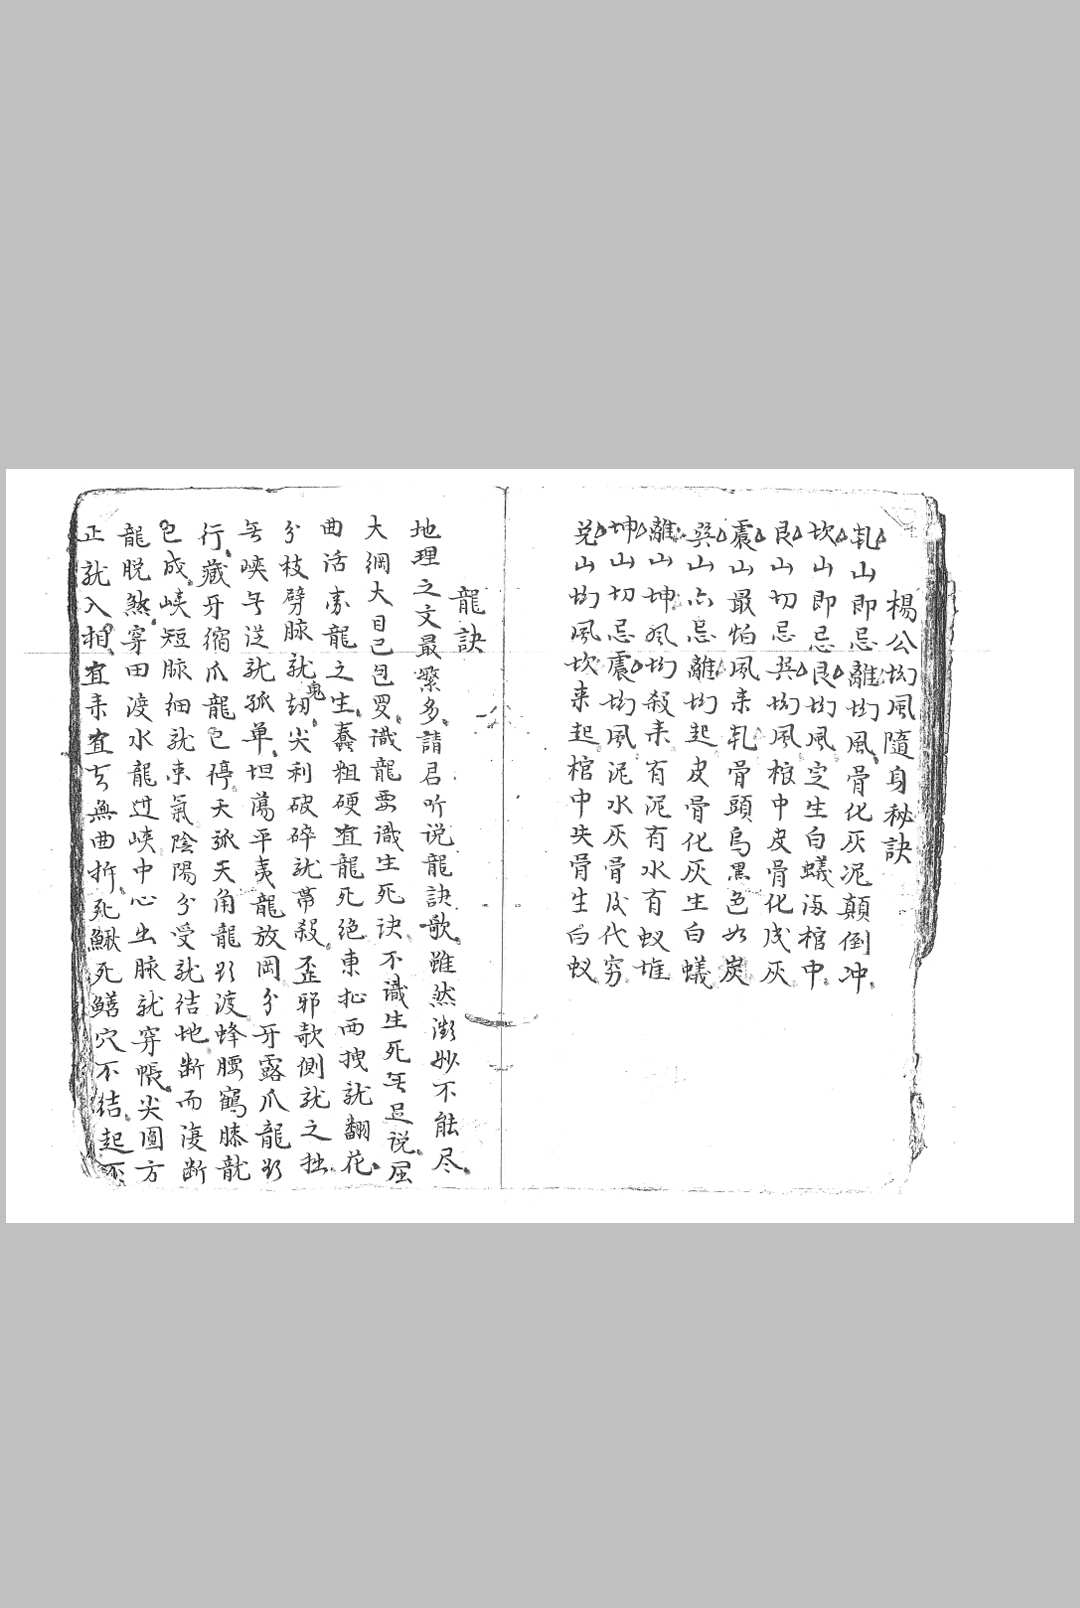 楊公坳風隨身秘訣
乹山即忌離坳風骨化灰泥顛倒冲
坎山即忌艮坳風定生白蟻在棺中
艮山切忌巽坳風棺中皮骨化成灰
震山最怕風来乹骨頭烏黑色如炭
巽山亦忌離坳起皮骨化灰生白蟻
離山坤風坳殺来有泥有水有蚁堆
坤山切忌震坳風泥水灰骨及代穷
兑山坳風坎来起棺中失骨生白蚁
龍訣
地理之文最繁多請君听说龍訣歌雖然澂妙不能尽
大綱大目己包罗識龍要識生死诀不識生死年足说屈
曲活㐖龍之生蠢粗硬直龍死绝東扯西拽就翻花
分枝劈脉就刧鬼尖利破碎就帶殺歪邪欹側就之拙
年峽年從就孤单坦蕩平夷龍放岡分牙露爪龍欲
行藏牙缩爪龍已停天孤天角龍欲渡蜂腰鶴膝龍
已成峽短脉细就束氣陰陽分受就结地断而復断
龍脱煞穿田渡水龍过峽中心出脉就穿帳尖圓方
正就入相直来直去無曲折死鰍死鱔穴不结起不